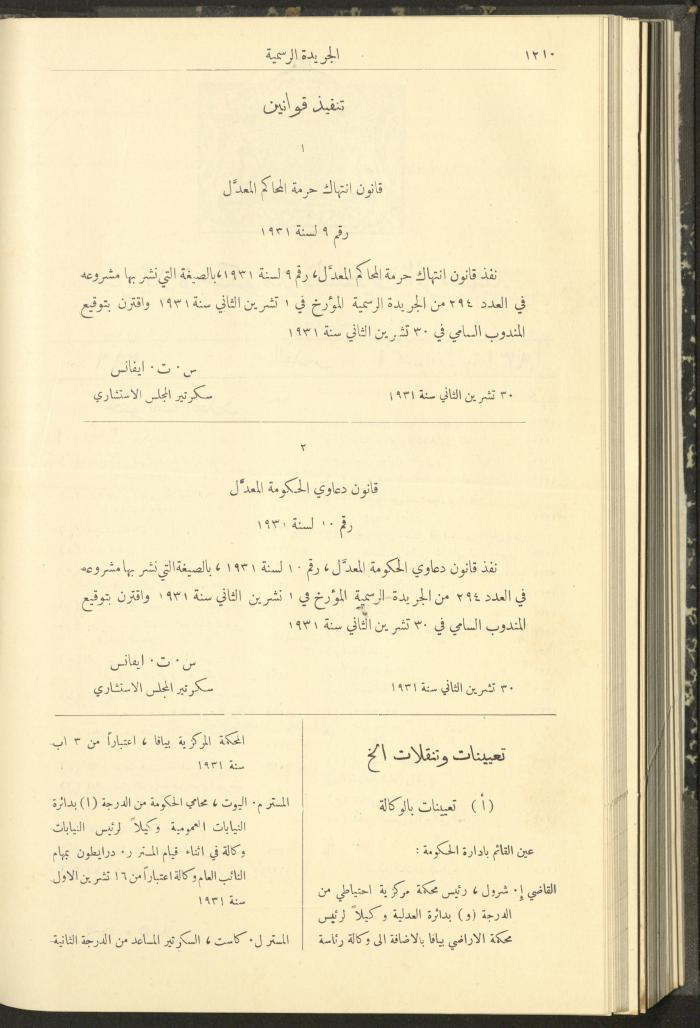 ١٢١٠
الجريدة الرسمية
تنفيذ قوانين
١
قانون انتهاك حرمة المحاكم المعدَّل
رقم ٩ لسنة ١٩٣١
نفذ قانون انتهاك حرمة المحاكم المعدَّل، رقم ٩ لسنة ١٩٣١، بالصيغة التي نشر بها مشروعه
في العدد ٢٩٤ من الجريدة الرسمية المؤرخ في ١ تشرين الثاني سنة ١٩٣١ واقترن بتوقيع
المندوب السامي في ٣٠ تشرين الثاني سنة ١٩٣١
س٠ ت٠ ايفانس
٣٠ تشرين الثاني سنة ١٩٣١ سكرتير المجلس الاستشاري
٢
قانون دعاوي الحكومة المعدَّل
رقم ١٠ لسنة ١٩٣١
نفذ قانون دعاوي الحكومة المعدَّل، رقم ١٠ لسنة ١٩٣١، بالصيغة التي نشر بها مشروعه
في العدد ٢٩٤ من الجريدة الرسمية المؤرخ في ١ تشرين الثاني سنة ١٩٣١ واقترن بتوقيع
المندوب السامي في ٣٠ تشرين الثاني سنة ١٩٣١
س٠ ت٠ ايفانس
٣٠ تشرين الثاني سنة ١٩٣١ سكرتير المجلس الاستشاري
تعيينات وتنقلات الخ
(أ) تعيينات بالوكالة
عين القائم بادارة الحكومة :
القاضي إ٠ شرول، رئيس محكمة مركزية احتياطي من
الدرجة (و) بدائرة العدلية وكيلاً لرئيس
محكمة الاراضي بيافا بالاضافة الى وكالة رئاسة
المحكمة المركزية بيافا، اعتباراً من ٣ اب
سنة ١٩٣١
المستر م٠ اليوت، محامي الحكومة من الدرجة (١) بدائرة
النيابات العمومية وكيلاً لرئيس النيابات
وكالة في اثناء قيام المستر ر٠ درايطون بمهام
النائب العام وكالة اعتباراً من ١٦ تشرين الاول
سنة ١٩٣١
المستر ل٠ كاست، السكرتير المساعد من الدرجة الثانية